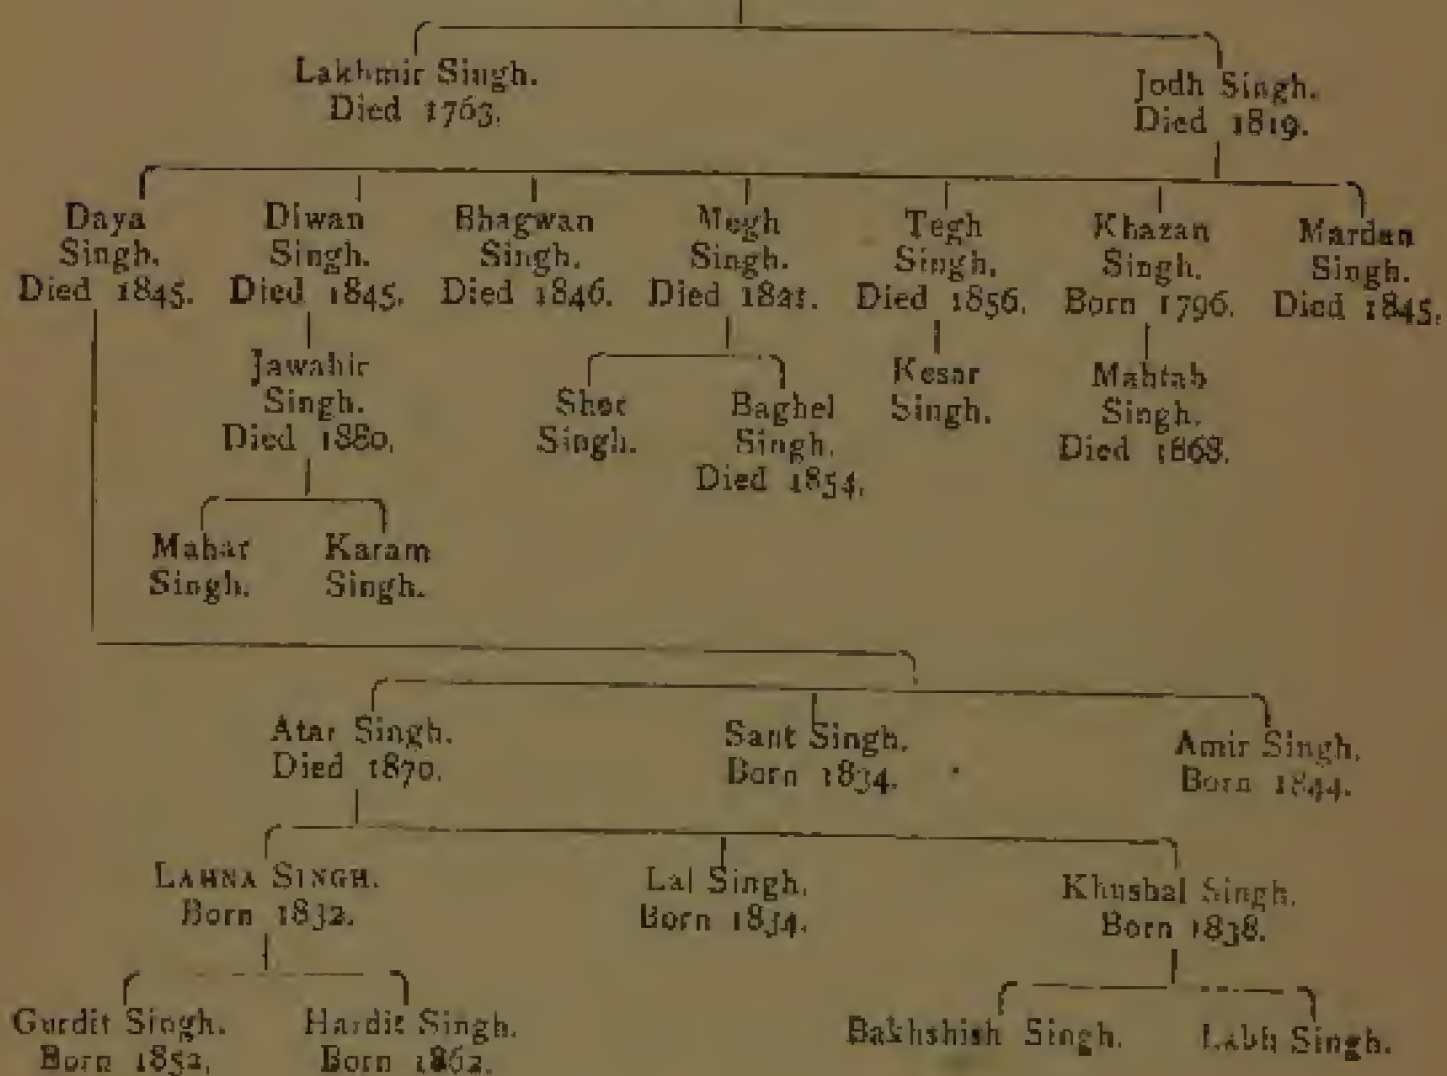 Lakhmir Singh.
Died 1763.
Jodh Singh.
Died 1819.
Daya
Singh.
Died 1845.
Diwan
Singh.
Died 1845.
Bhagwan
Singh.
Died 1846.
Megh
Singh.
Died 1821.
Tegh
Singh.
Died 1856.
Khazan
Singh.
Born 1796.
Mardan
Singh.
Died 1845.
Jawahir
Singh.
Died 1880.
Sher
Singh.
Baghel
Singh.
Died 1854.
Kesar
Singh.
Mahtab
Singh.
Died 1868.
Mahar
Singh.
Karam
Singh.
Atar Singh.
Died 1870.
Sant Singh.
Born 1834.
Amir Singh.
Born 1844.
LAHNA SINGH.
Born 1832.
Lal Singh.
Born 1834.
Khushal Singh.
Born 1838.
Gurdit Singh.
Born 1852.
Hardit Singh.
Born 1862.
Bakhshish Singh.
Labh Singh.